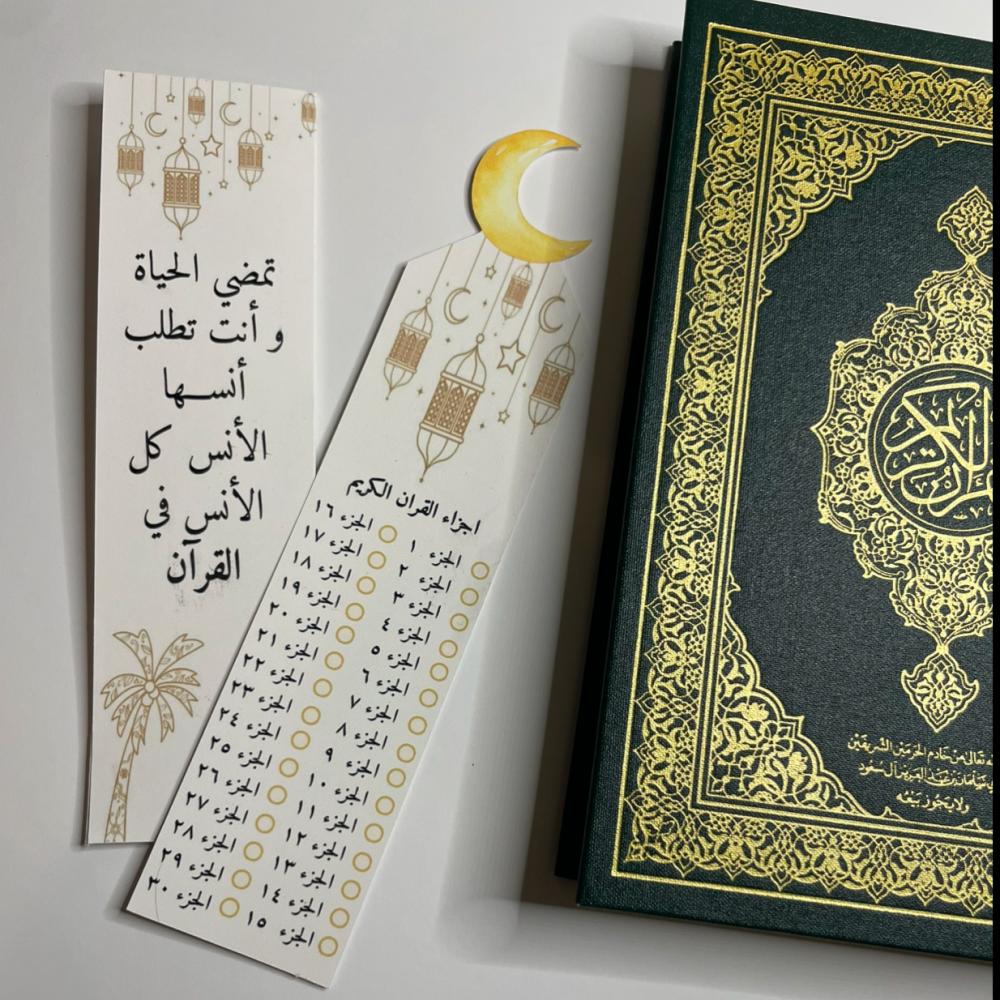 تمضي الحياة
و أنت تطلب
أنسـها
الأنس كل
الأنس في
القرآن
اجزاء القران الكريم
الجزء ١
الجزء ٢
الجزء ٣
الجزء ٤
الجزء ٥
الجزء ٦
الجزء ٧
الجزء ٨
الجزء ٩
الجزء ١٠
الجزء ١١
الجزء ١٢
الجزء ١٣
الجزء ١٤
الجزء ١٥
الجزء ١٦
الجزء ١٧
الجزء ١٨
الجزء ١٩
الجزء ٢٠
الجزء ٢١
الجزء ٢٢
الجزء ٢٣
الجزء ٢٤
الجزء ٢٥
الجزء ٢٦
الجزء ٢٧
الجزء ٢٨
الجزء ٢٩
الجزء ٣٠
تعالى من خادم الحرمين الشريفين
بن عبد العزيز آل سعود
ولا يجوز بيعه